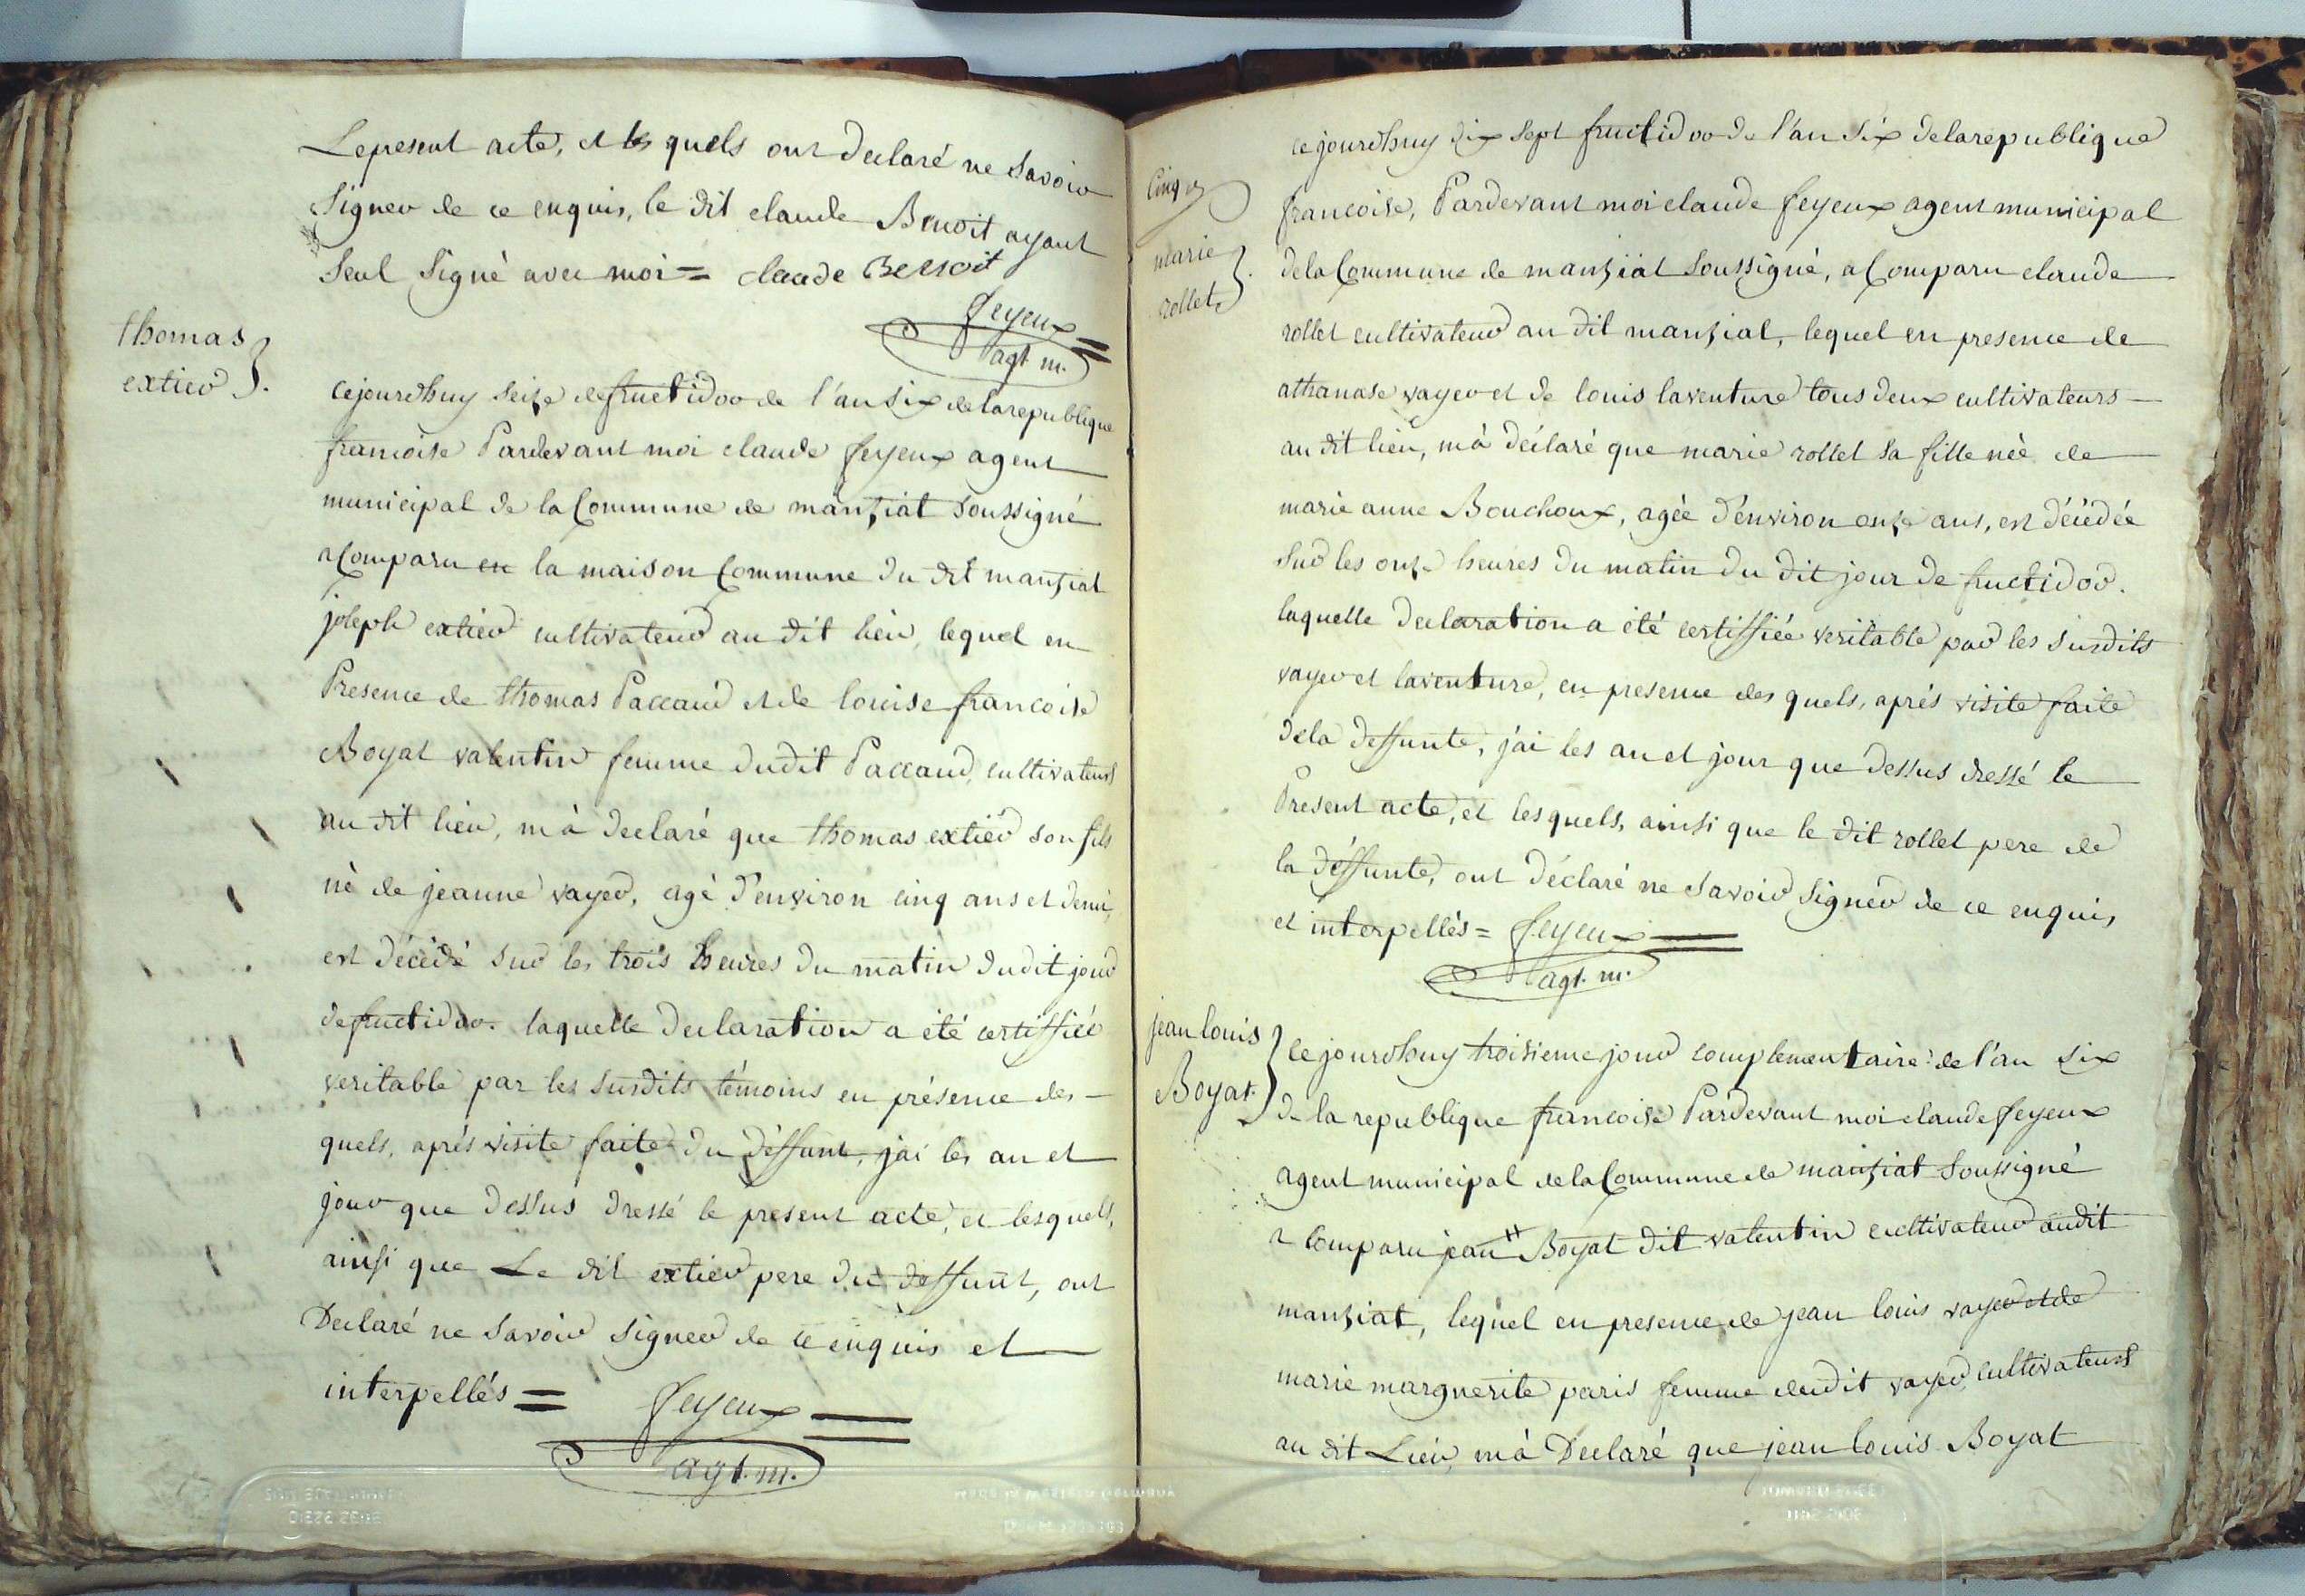 Le present acte, et les quels ont declaré ne savoir
signer de ce enquis, le dit claude Benoit ayant
seul signé avec moi = claude Benoit
feyeux
agt. m.
thomas
extier
cejourdhuy seize de fructidor de l'an six de la republique
francoise Pardevant moi claude feyeux agent
municipal de la Commune de manziat soussigné
a Comparu en la maison Commune du dit manziat
joseph extier cultivateur au dit lieu, lequel en
Presence de thomas Paccaud et de louise francoise
Boyat valentin femme dudit Paccaud, cultivateurs
au dit lieu, m'à declaré que thomas extier son fils
né de jeanne vayer, agé d'environ cinq ans et demi,
est décédé sur les trois heures du matin dudit jour
de fructidor. laquelle declaration a été certiffiée
veritable par les susdits témoins en présence des
quels, aprés visite faite du déffunt, j'ai les an et
jour que dessus dressé le present acte, et lesquels,
ainsi que Le dit extier pere du deffunt, ont
Declaré ne savoir signer de ce enquis et
interpellés = feyeux
agt. m.
cinq
marie
rollet
cejourdhuy dix sept fructidor de l'an six de la republique
francoise, Pardevant moi claude feyeux agent municipal
de la Commune de manziat soussigné, a Comparu claude
rollet cultivateur au dit manziat, lequel en presence de
athanase vayer et de louis laventure tous deux cultivateurs
au dit lieu, m'à déclaré que marie rollet sa fille néé de
marie anne Bouchoux, agéé d'environ onze ans, est décédée
sur les onze heures du matin du dit jour de fructidor.
laquelle declaration a été certiffiée veritable par les susdits
vayer et laventure, en presence des quels, aprés visite faite
de la deffunte, j'ai les an et jour que dessus dressé le
Present acte, et lesquels, ainsi que le dit rollet pere de
la déffunte, ont déclaré ne savoir signer de ce enquis,
et interpellés = feyeux
agt. m.
jean louis
Boyat
cejourdhuy troisieme jour complementaire de l'an six
de la republique francoise Pardevant moi claude feyeux
agent municipal de la Commune de manziat soussigné
a Comparu jean Boyat dit valentin cultivateur audit
manziat, lequel en presence de jean louis vayer et de
marie marguerite paris femme dudit vayer, cultivateurs
au dit Lieu, m'à Declaré que jean louis Boyat